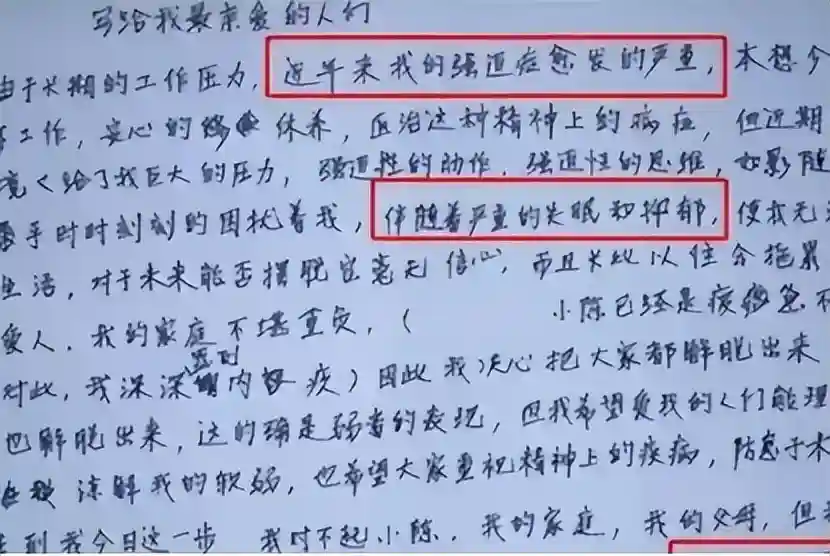 写给我最亲爱的人们
由于长期的工作压力，近年来我的强迫症愈发的严重，本想今
工作，安心的休养，医治这种精神上的病症，但近期
境给了我巨大的压力，强迫性的动作，强迫性的思维，如影随
乎时时刻刻的困扰着我，伴随着严重的失眠和抑郁，使我无法
生活，对于未来能否摆脱它毫无信心，而且长此以往会拖累
爱人，我的家庭不堪重负，（小陈已经是疲惫不
对此，我深深感到内疚）因此我决心把大家都解脱出来
也解脱出来，这的确是弱者的表现，但我希望爱我的人们能理
谅解我的软弱，也希望大家重视精神上的疾病，防患于未
到我今日这一步 我对不起小陈，我的家庭，我的父母，但我